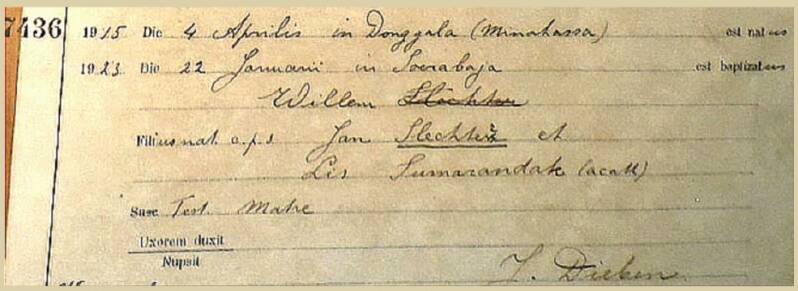 7436 1915 Die 4 Aprilis in Donggala (Minahassa) est natus
1923 Die 22 Januarii in Soerabaja est baptizatus
Willem Slechter
Filius nat. e.p.s. Jan Slechter et
Lis Sumarandak (acatt)
Susc Test. Matre
Uxorem duxit
Nupsit
J. Dieben